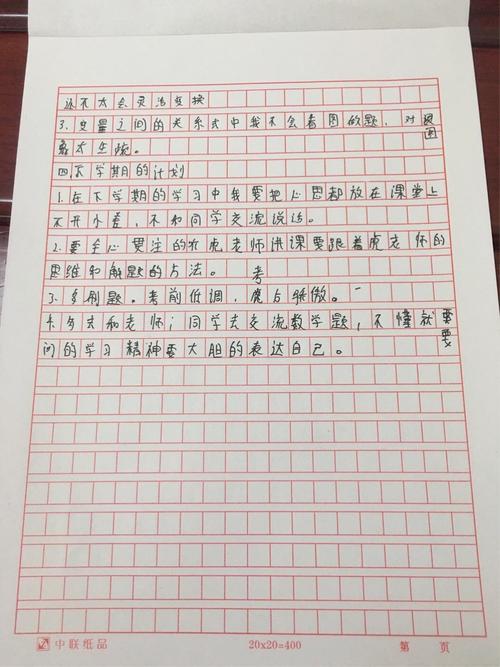 还不太会灵活变换
3、变量之间的关系式中我不会看图做题，对图
象太生疏。
四.下学期的计划
1.在下学期的学习中我要把心思都放在课堂上
不开小差，不和同学交流说话。
2.要全心贯注的听虎老师讲课要跟着虎老师的
思维和解题的方法。考
3、多刷题。考前低调，骄傲。
多去和老师；同学去交流数学题，不懂就要
问的学习精神要大胆的表达自己。
中联纸品
20x20=400
第 页